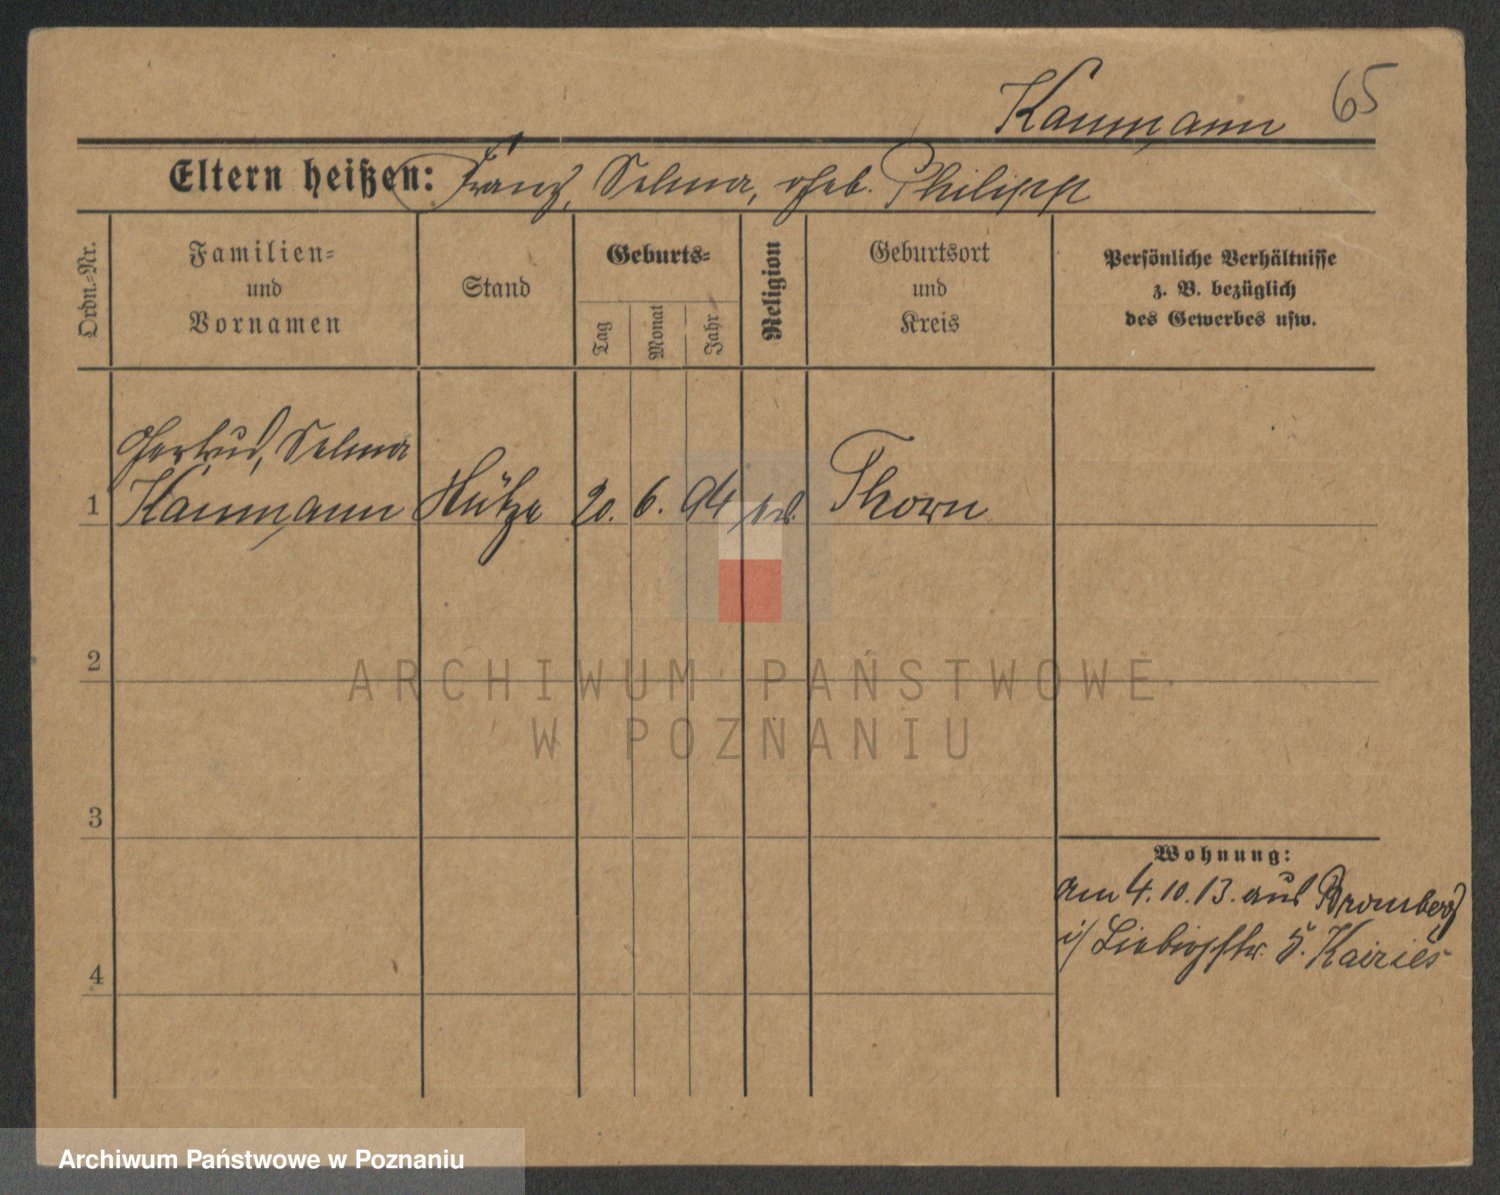 Kaumann 65
Eltern heißen: Franz, Selma, geb. Philipp
Ordn.-Nr.
Familien-
und
Vornamen
Stand
Geburts-
Tag
Monat
Jahr
Religion
Geburtsort
und
Kreis
Persönliche Verhältnisse
z. B. bezüglich
des Gewerbes usw.
Gertrud, Selma
1 Kaumann Stütze 20. 6. 94 Thorn
2
3
4
Wohnung:
am 4.10.13. aus Bromberg
i/ Liebigstr. 5. Kairies
ARCHIWUM PAŃSTWOWE
W POZNANIU
Archiwum Państwowe w Poznaniu